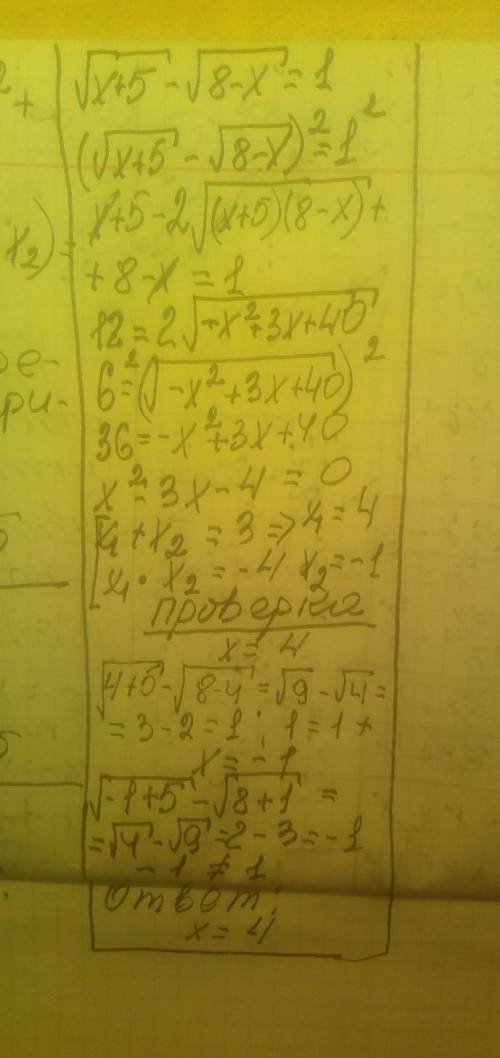 √(x+5) - √(8-x) = 1
(√(x+5) - √(8-x))² = 1²
x+5-2√((x+5)(8-x)) +
+ 8-x = 1
12 = 2√(-x²+3x+40)
6² = (√(-x²+3x+40))²
36 = -x²+3x+40
x²-3x-4 = 0
[x₁+x₂ = 3 => x₁ = 4
[x₁·x₂ = -4 x₂ = -1
проверка
x = 4
√(4+5) - √(8-4) = √9 - √4 =
= 3-2 = 1; 1 = 1 +
x = -1
√(-1+5) - √(8+1) =
= √4 - √9 = 2-3 = -1
-1 ≠ 1
Ответ:
x = 4
2+
x₂) =
ре-
ри-
5
5